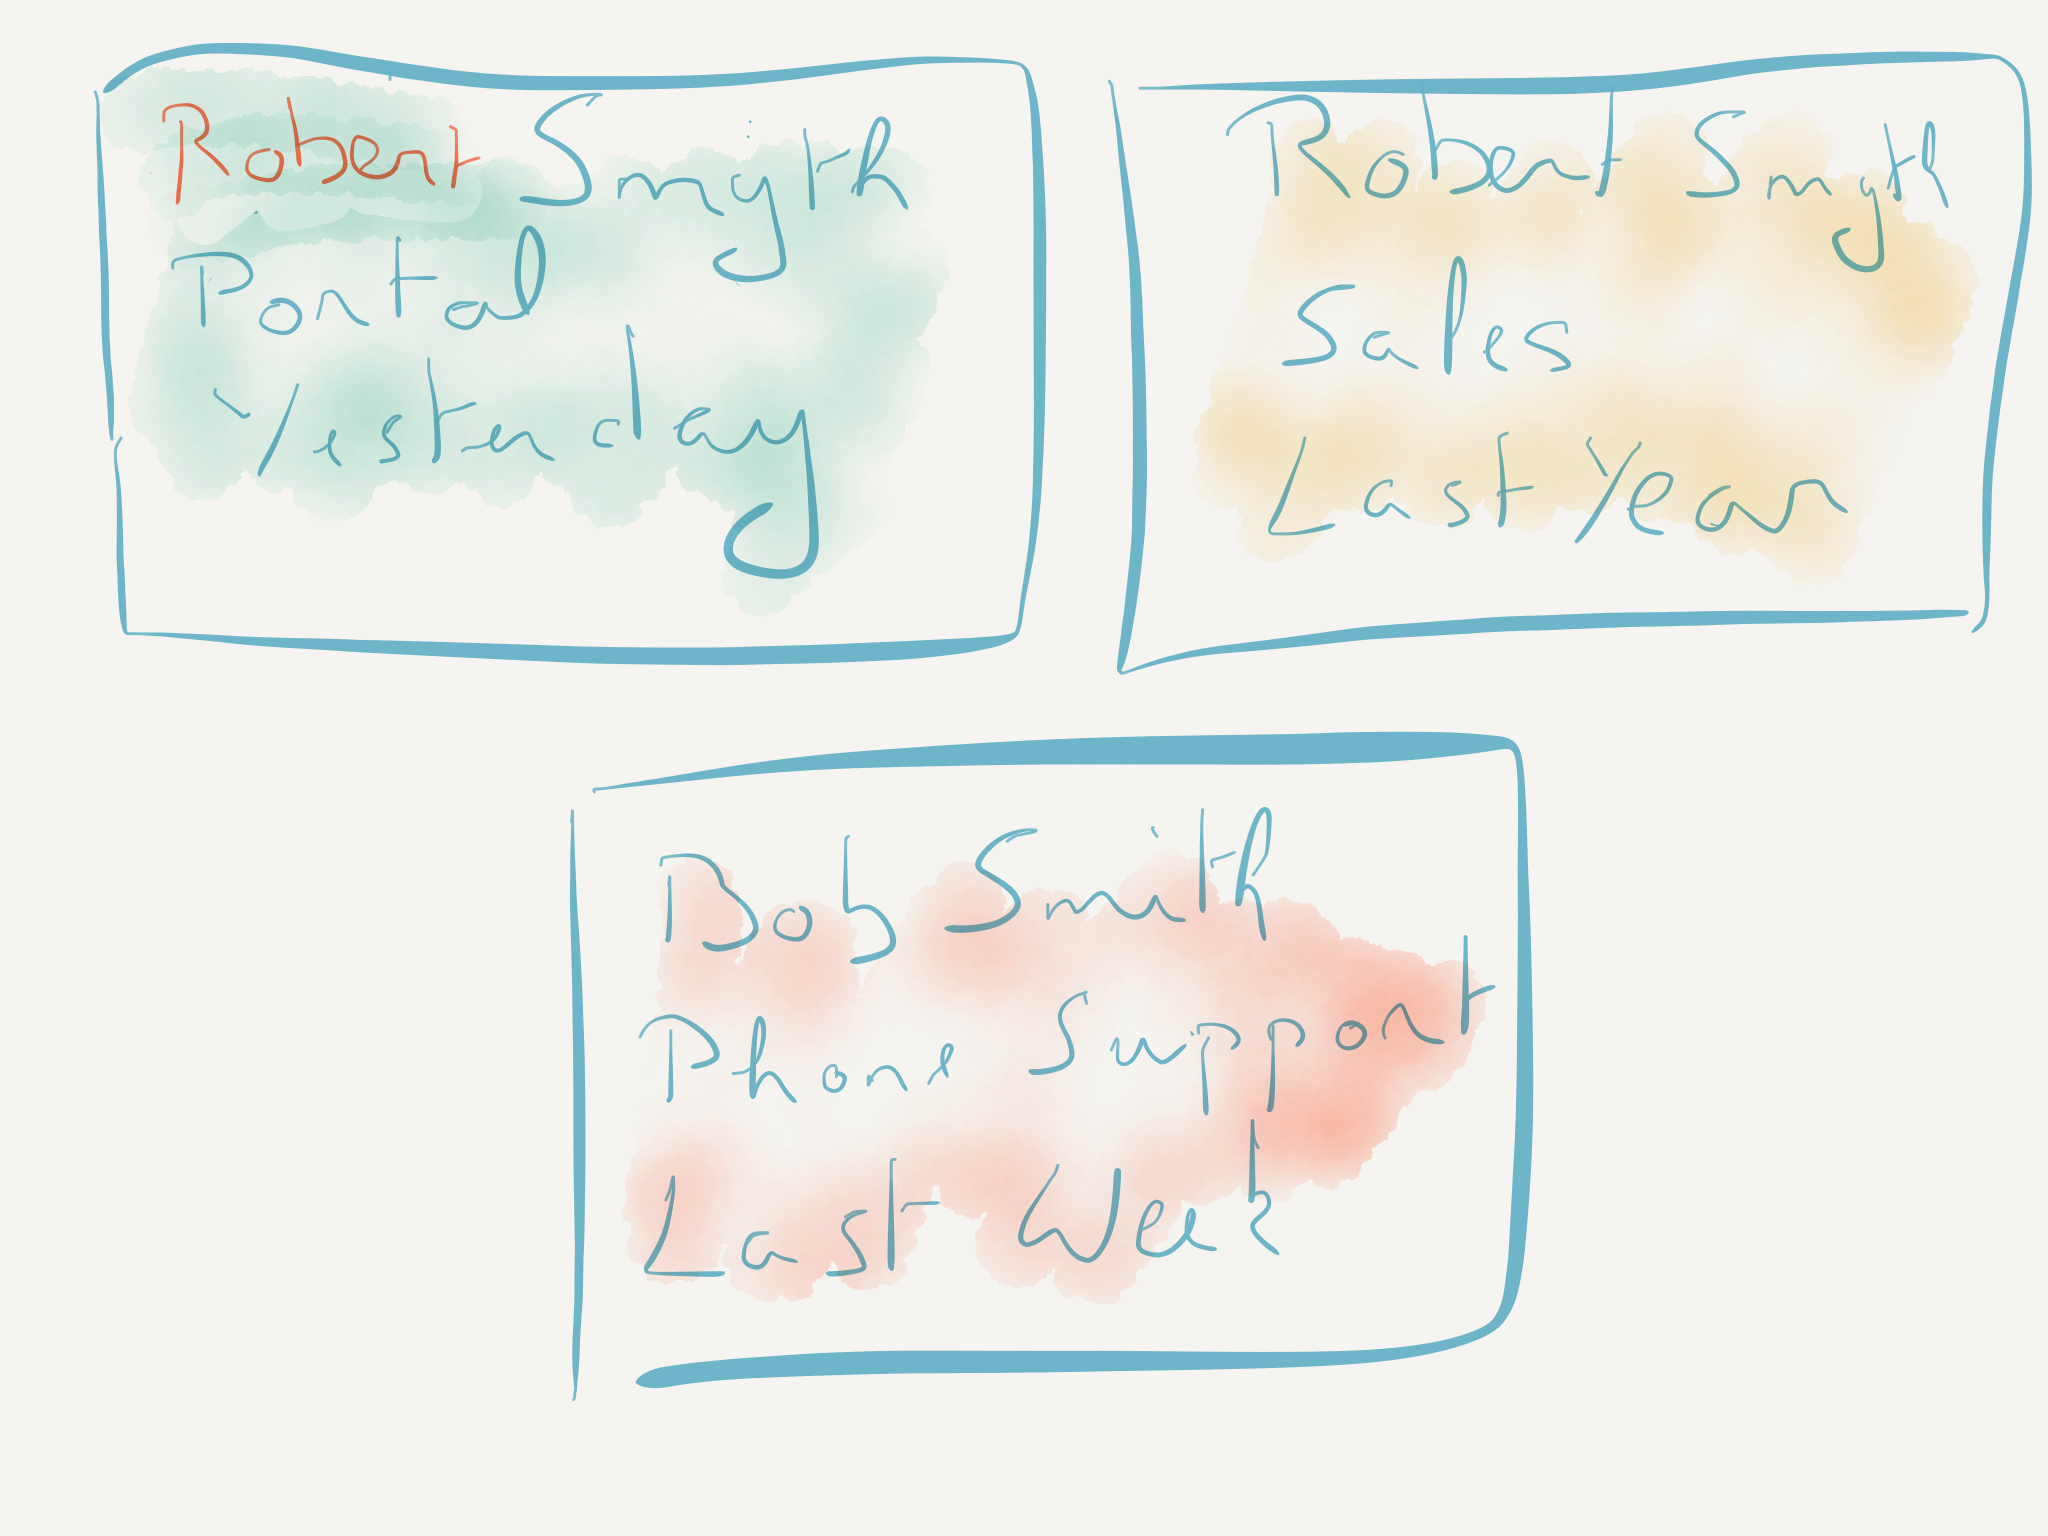 Robert Smyth
Portal
Yesterday
Robert Smyth
Sales
Last Year
Bob Smith
Phone Support
Last Week